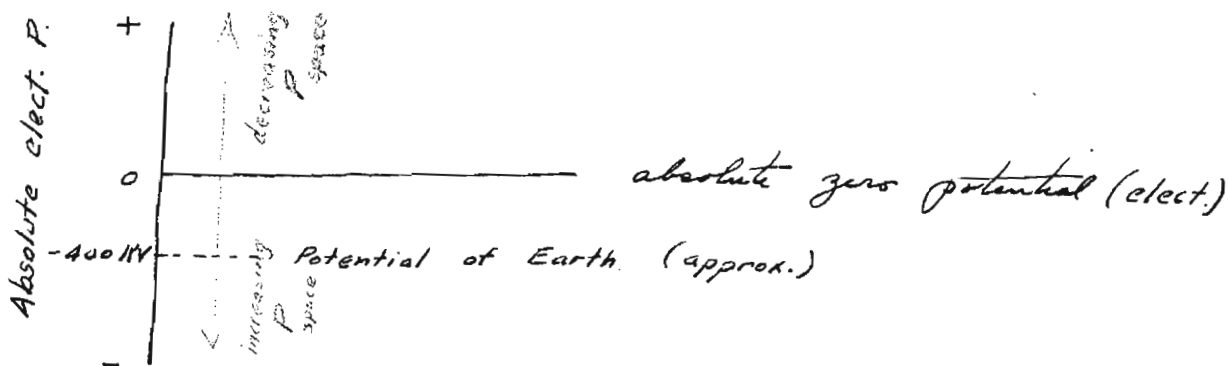 Absolute elect. P.
+
decreasing
P
space
0
absolute zero potential (elect.)
-400 KV
Potential of Earth (approx.)
increasing
P
space
-